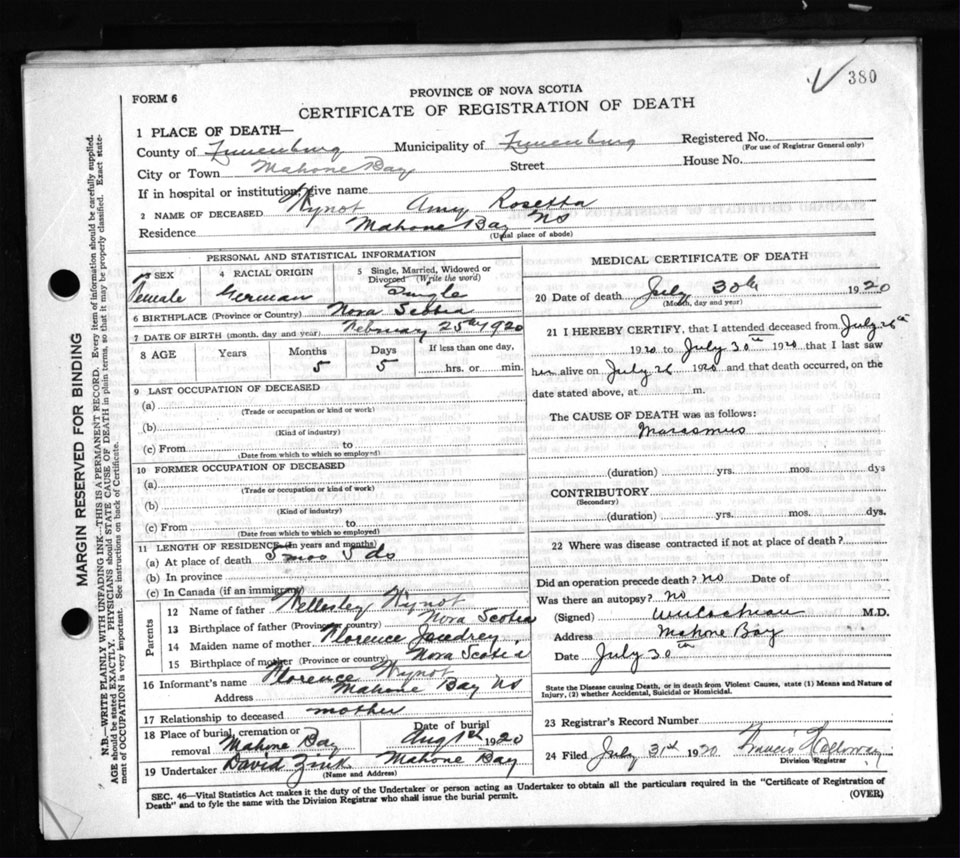 380
PROVINCE OF NOVA SCOTIA
FORM 6
CERTIFICATE OF REGISTRATION OF DEATH
1 PLACE OF DEATH—
County of Lunenburg Municipality of Lunenburg Registered No.
(For use of Registrar General only)
City or Town Mahone Bay Street House No.
If in hospital or institution, give name
2 NAME OF DECEASED Wynot Amy Rosetta
Residence Mahone Bay NS
(Usual place of abode)
PERSONAL AND STATISTICAL INFORMATION
3 SEX 4 RACIAL ORIGIN 5 Single, Married, Widowed or Divorced (Write the word)
Female German Single
6 BIRTHPLACE (Province or Country) Nova Scotia
7 DATE OF BIRTH (month, day and year) February 25th 1920
8 AGE Years Months Days If less than one day,
5 5 hrs. or min.
9 LAST OCCUPATION OF DECEASED
(a)
(Trade or occupation or kind or work)
(b)
(Kind of industry)
(c) From to
(Date from which to which so employed)
10 FORMER OCCUPATION OF DECEASED
(a)
(Trade or occupation or kind of work)
(b)
(Kind of industry)
(c) From to
(Date from which to which so employed)
11 LENGTH OF RESIDENCE (in years and months)
(a) At place of death 5 mos 5 ds
(b) In province
(c) In Canada (if an immigrant)
Parents
12 Name of father Wellesley Wynot
13 Birthplace of father (Province or country) Nova Scotia
14 Maiden name of mother Florence Joudrey
15 Birthplace of mother (Province or country) Nova Scotia
16 Informant's name Florence Wynot
Address Mahone Bay NS
17 Relationship to deceased mother
18 Place of burial, cremation or removal Mahone Bay Date of burial Aug 1st 1920
19 Undertaker David Zink Mahone Bay
(Name and Address)
MEDICAL CERTIFICATE OF DEATH
20 Date of death July 30th 1920
(Month, day and year)
21 I HEREBY CERTIFY, that I attended deceased from July 26th
1920 to July 30th 1920 that I last saw
her alive on July 26 1920 and that death occurred, on the
date stated above, at m.
The CAUSE OF DEATH was as follows:
Marasmus
(duration) yrs. mos. dys
CONTRIBUTORY
(Secondary)
(duration) yrs. mos. dys.
22 Where was disease contracted if not at place of death?
Did an operation precede death? no Date of
Was there an autopsy? no
(Signed) M.D.
Address Mahone Bay
Date July 30th
State the Disease causing Death, or in death from Violent Causes, state (1) Means and Nature of
Injury, (2) whether Accidental, Suicidal or Homicidal.
23 Registrar's Record Number
24 Filed July 31st 1920 Francis Holloway
Division Registrar
SEC. 46—Vital Statistics Act makes it the duty of the Undertaker or person acting as Undertaker to obtain all the particulars required in the "Certificate of Registration of
Death" and to fyle the same with the Division Registrar who shall issue the burial permit. (OVER)
MARGIN RESERVED FOR BINDING
N.B.—WRITE PLAINLY WITH UNFADING INK—THIS IS A PERMANENT RECORD. Every item of information should be carefully supplied.
AGE should be stated EXACTLY. PHYSICIANS should STATE CAUSE OF DEATH in plain terms, so that it may be properly classified. Exact state-
ment of OCCUPATION is very important. See instructions on back of Certificate.